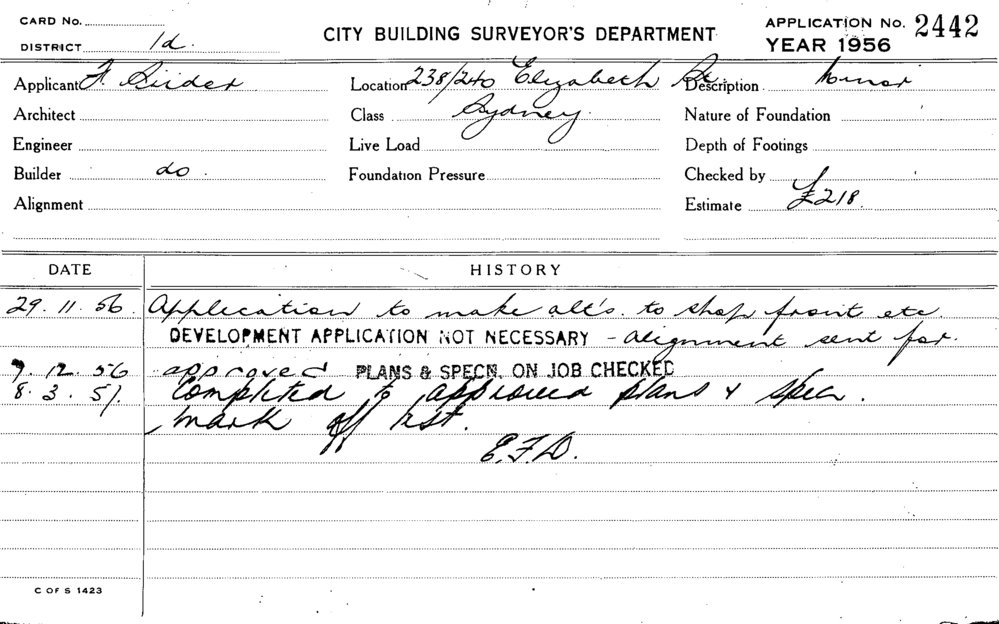 CARD No.
DISTRICT 1d.
CITY BUILDING SURVEYOR'S DEPARTMENT
APPLICATION No. 2442
YEAR 1956
Applicant F.
Location 238/240 Elizabeth St.
Description Minor
Architect
Class Sydney.
Nature of Foundation
Engineer
Live Load
Depth of Footings
Builder do.
Foundation Pressure
Checked by
Alignment
Estimate £218.
DATE HISTORY
29.11.56. Application to make alt's. to shop front etc.
DEVELOPMENT APPLICATION NOT NECESSARY - alignment sent for.
7.12.56 approved PLANS & SPECN. ON JOB CHECKED
8.3.57. Completed to approved plans & specn.
mark off
E.F.D.
C OF S 1423